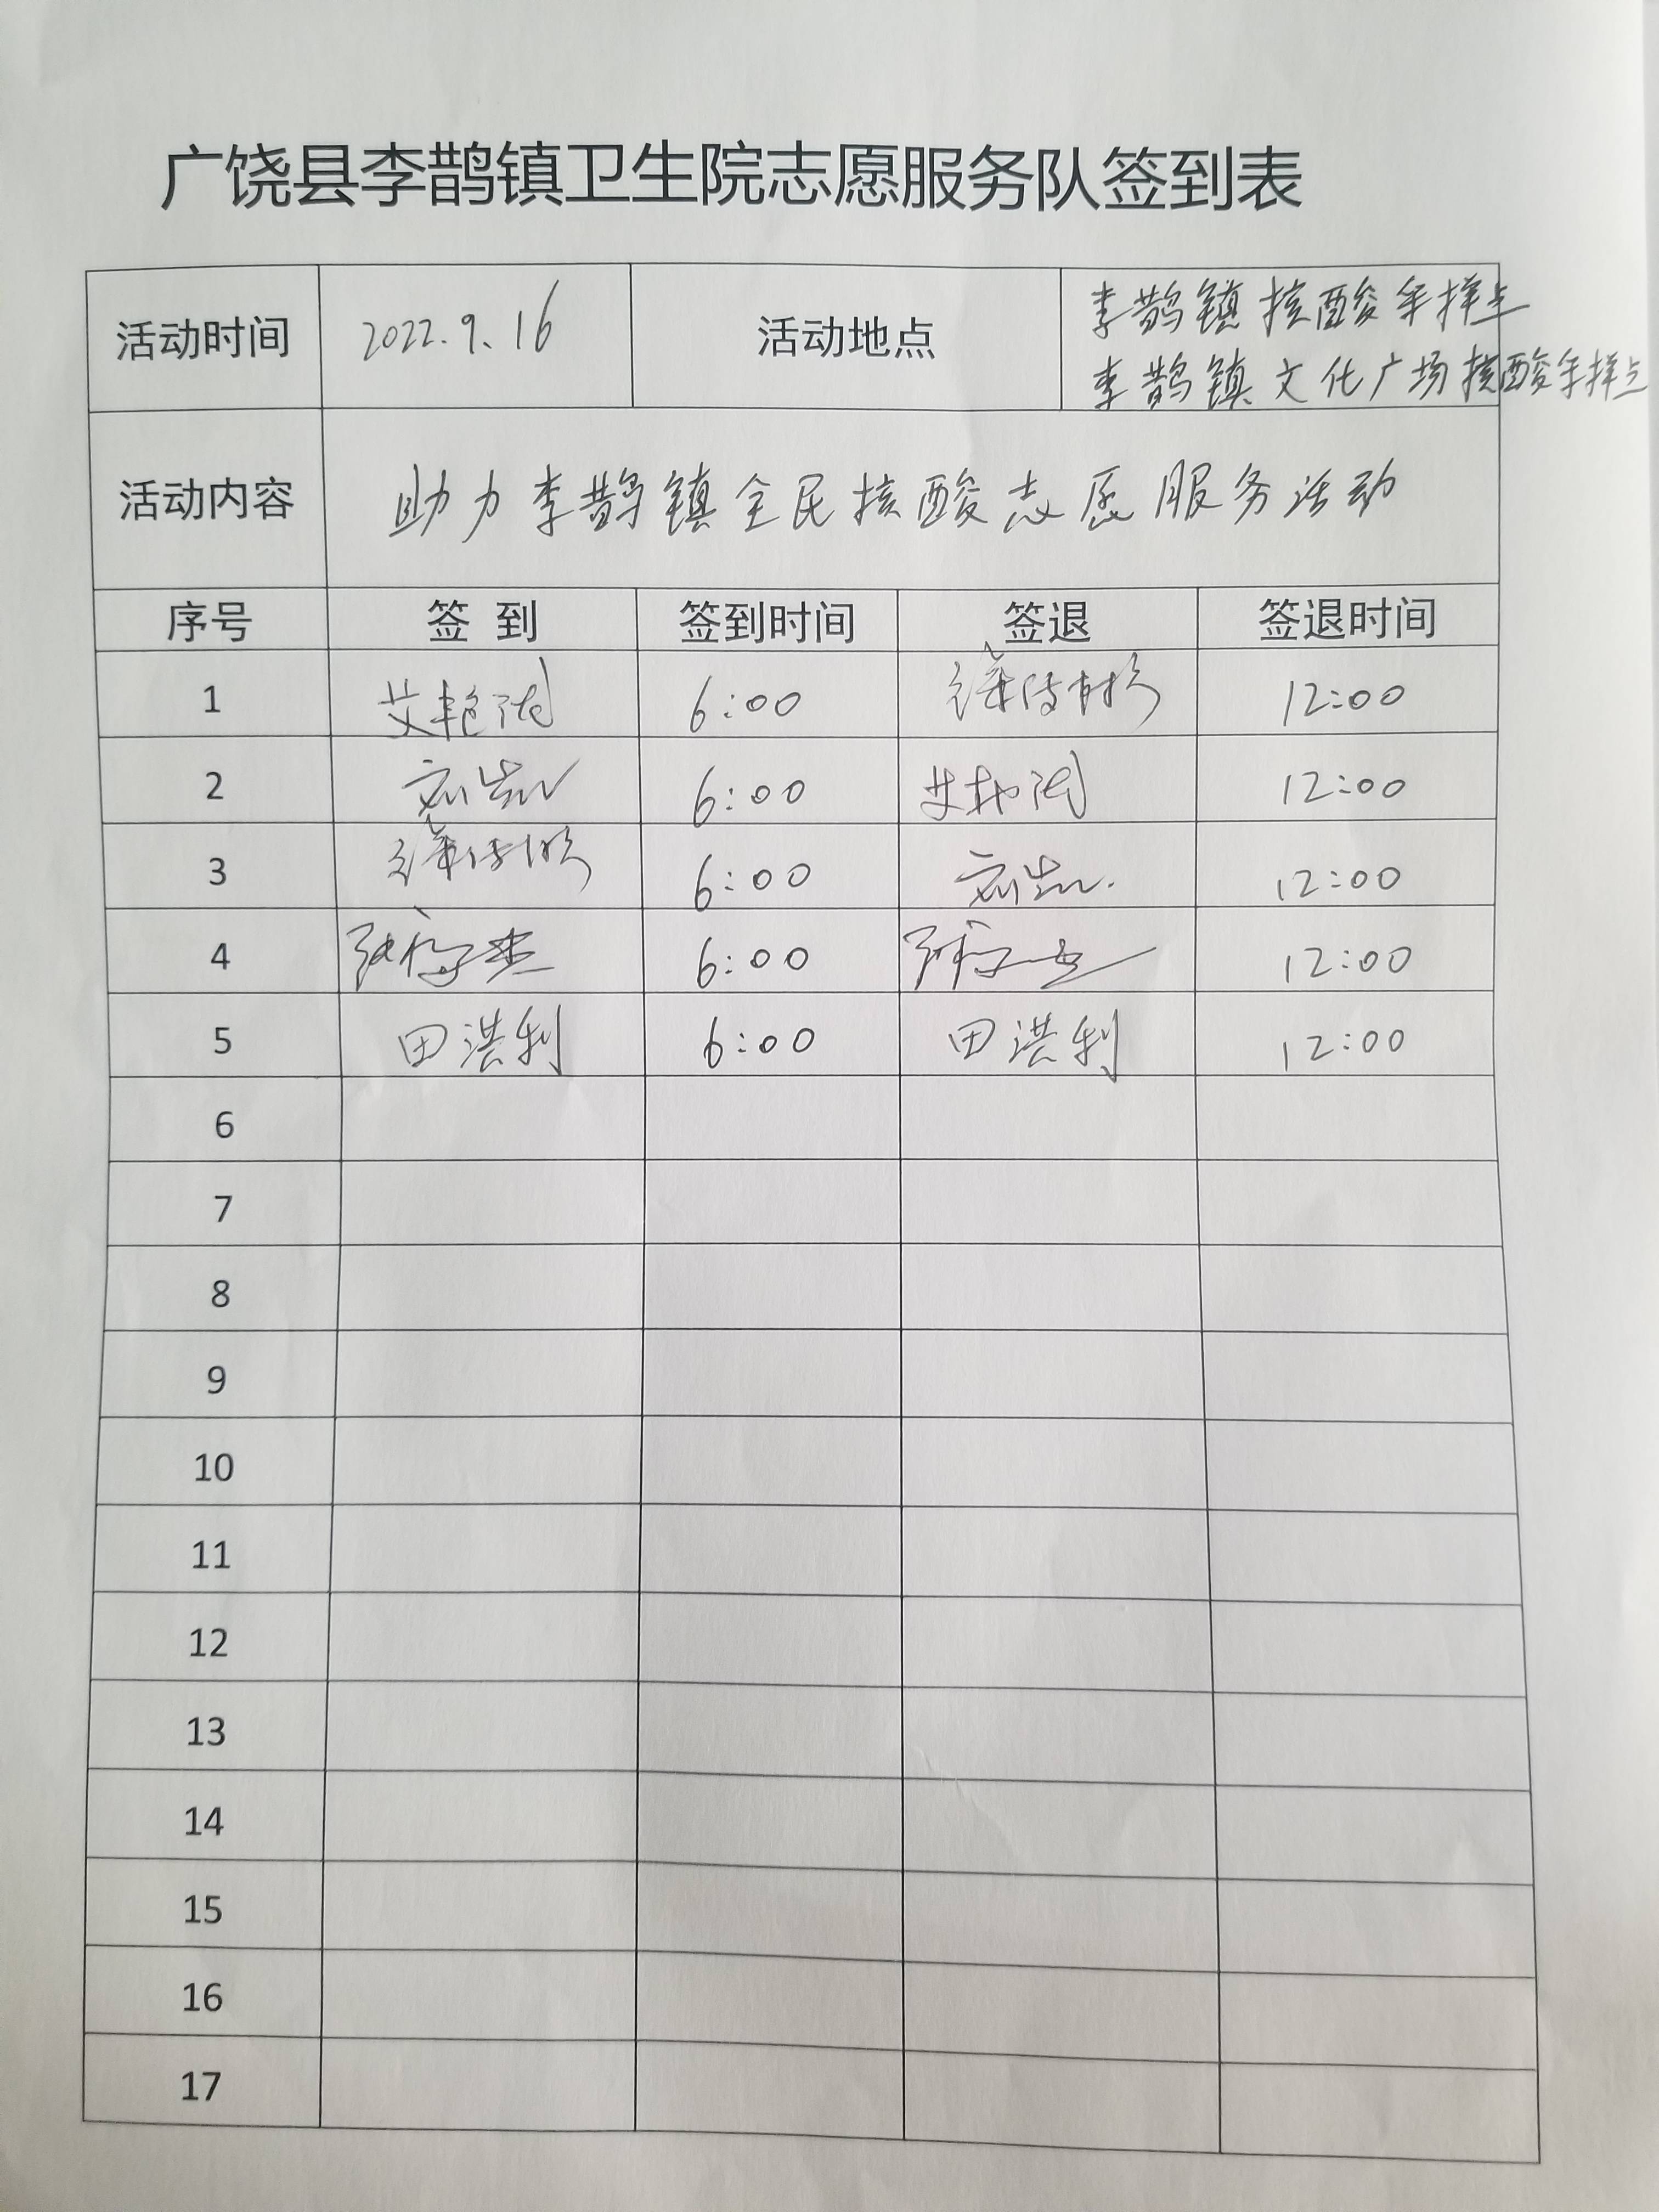 广饶县李鹊镇卫生院志愿服务队签到表
活动时间 2022.9.16 活动地点 李鹊镇核酸采样点
李鹊镇文化广场核酸采样点
活动内容 助力李鹊镇全民核酸志愿服务活动
序号 签到 签到时间 签退 签退时间
1 艾艳 6:00 12:00
2 6:00 艾艳 12:00
3 6:00 12:00
4 6:00 12:00
5 田洪利 6:00 田洪利 12:00
6
7
8
9
10
11
12
13
14
15
16
17